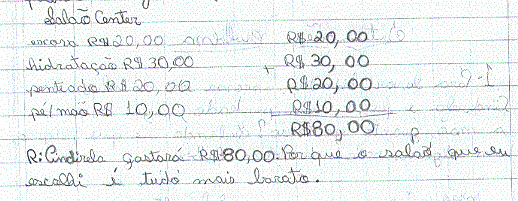 Salão Center
escova R$20,00 R$20,00
hidratação R$ 30,00 + R$ 30,00
penteado R$ 20,00 R$20,00
pé/mão R$ 10,00 R$10,00
R$80,00
R: Cindirela gastará R$80,00. Por que o salão que eu
escolhi é tudo mais barato.